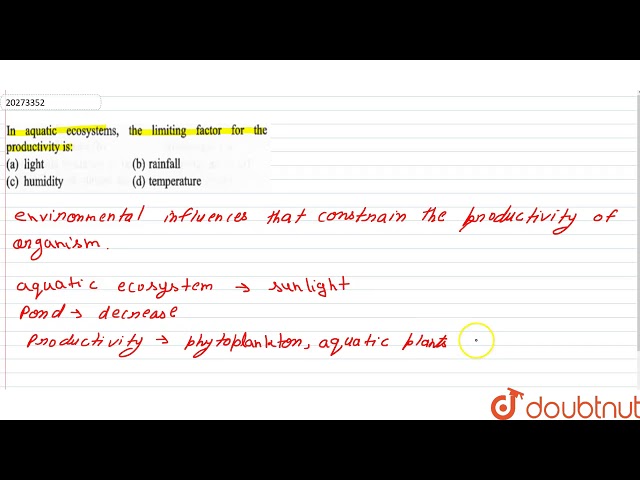 20273352
In aquatic ecosystems, the limiting factor for the
productivity is:
(a) light (b) rainfall
(c) humidity (d) temperature
environmental influences that constrain the productivity of
organism.
aquatic ecosystem → sunlight
Pond → decrease
Productivity → phytoplankton, aquatic plants
doubtnut